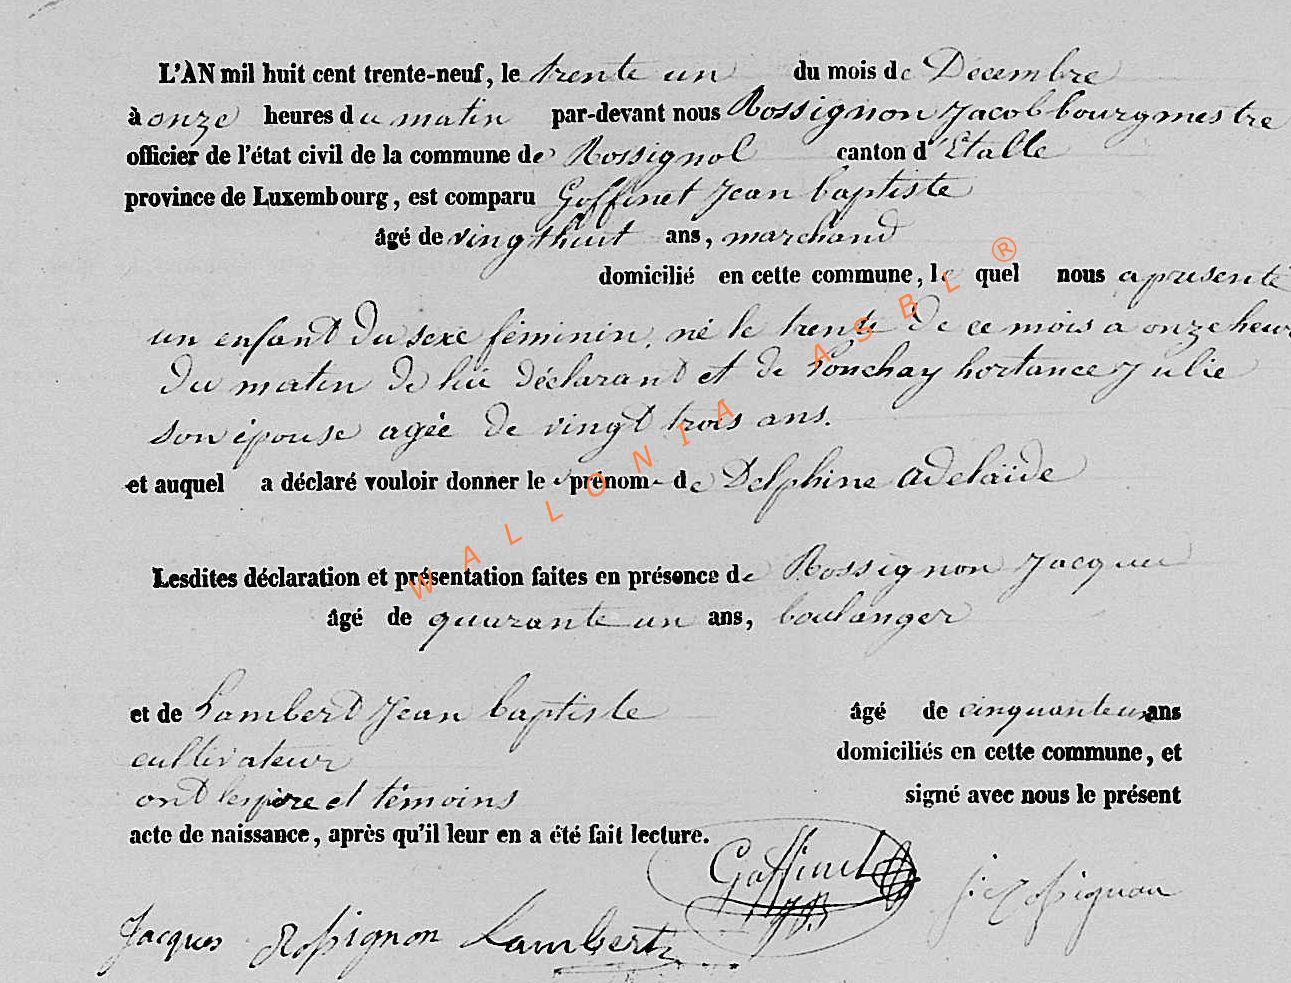 L'AN mil huit cent trente-neuf, le trente un du mois de Décembre
à onze heures du matin par-devant nous Rossignon Jacob bourgmestre
officier de l'état civil de la commune de Rossignol canton d'Etalle
province de Luxembourg, est comparu Goffinet Jean baptiste
âgé de vingt huit ans, marchand
domicilié en cette commune, le quel nous a présenté
un enfant du sexe féminin, né le trente de ce mois a onze heures
du matin de lui déclarant et de Ponchay hortance Julie
son épouse agée de vingt trois ans.
et auquel a déclaré vouloir donner le prénom de Delphine adelaïde
Lesdites déclaration et présentation faites en présence de Rossignon Jacques
âgé de quarante un ans, boulanger
et de Lambert Jean baptiste âgé de cinquante un ans
cultivateur domiciliés en cette commune, et
ont les père et témoins signé avec nous le présent
acte de naissance, après qu'il leur en a été fait lecture.
Goffinet JB
J. Rossignon
Jacques Rossignon Lambert
WALLONIA ASBL ®